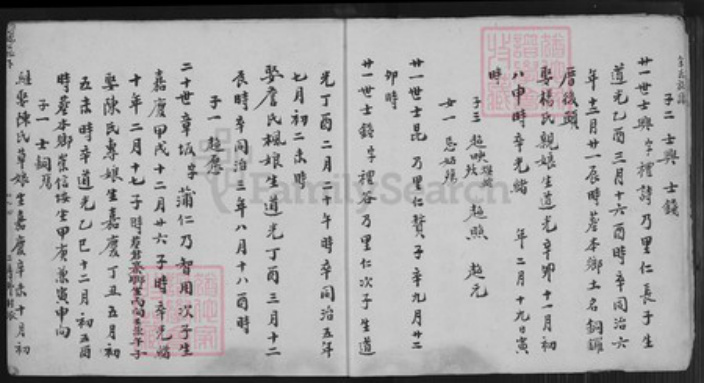 子二 士興 士錢
廿一世士興字禮詩乃里仁長子生
道光乙酉三月十六酉時卒同治六
年十二月廿一辰時葬本鄉土名銅鑼
厝後頭
娶楊氏親娘生道光辛卯十一月初
八申時卒光緒 年二月十九日寅
時
子三 超映 超照 超元
女一
廿一世士昆乃里仁贅子卒九月廿二
卯時
廿一世士錢字禮谷乃里仁次子生道
光丁酉二月二十午時卒同治五年
七月初二未時
娶詹氏楓娘生道光丁酉三月十二
辰時卒同治三年八月十八酉時
子一 超應
二十世章坂字蒲仁乃智用次子生
嘉慶甲戌十二月廿六子時卒光緒
十年二月十七子時
娶陳氏專娘生嘉慶丁丑五月初
五未時卒道光乙巳十二月初五酉
時葬本鄉崇信垵坐甲庚兼寅申向
子一 士銅
繼娶陳氏草娘生嘉慶辛未十月初
FamilySearch